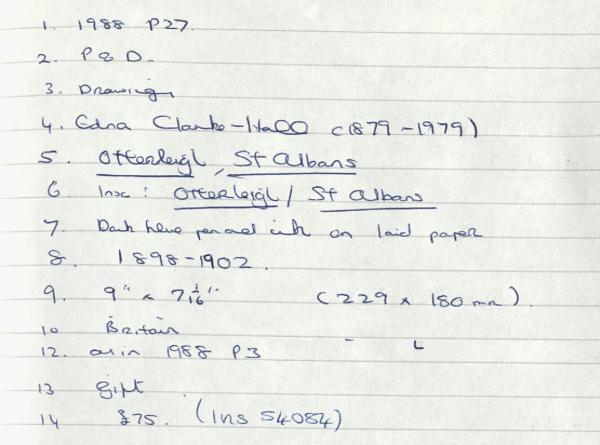 1. 1988 P27.
2. P & D.
3. Drawing
4. Edna Clarke-Hall (1879-1979)
5. Otterleigh, St Albans
6 Insc: Otterleigh / St Albans
7. Dark blue pen and ink on laid paper
8. 1898-1902.
9. 9" x 7 1/16" (229 x 180 mm).
10 Britain
12. as in 1988 P3
13 Gift
14 £75. (Ins 54084)